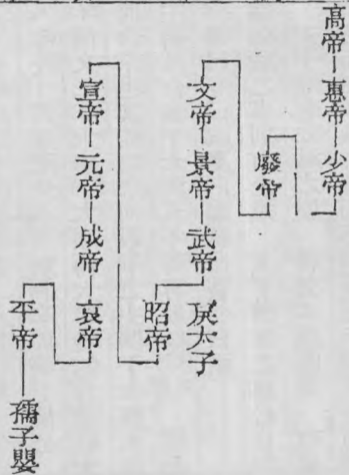 高帝 惠帝 少帝
廢帝
文帝 景帝 武帝 戾太子
昭帝
宣帝 元帝 成帝 哀帝
平帝 孺子嬰